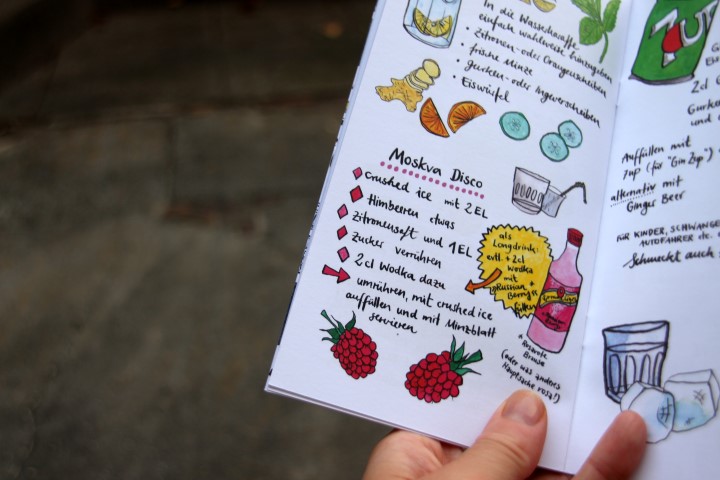 In die Wasserkaraffe
einfach wahlweise hinzugeben
• Zitronen- oder Orangenscheiben
• frische Minze
• Gurken- oder Ingwerscheiben
• Eiswürfel
Moskva Disco
crushed ice mit 2 EL
Himbeeren etwas
Zitronensaft und 1 EL
Zucker verrühren
2 cl Wodka dazu
umrühren, mit crushed ice
auffüllen und mit Minzblatt
servieren
als
Longdrink:
evtl. + 2cl
Wodka
mit
Russian
+
(oder was anderes
Hauptsache rosa!)
7UP
2 cl
und
Auffüllen mit
7up (für "Gin 7up")
alternativ mit
Ginger Beer
FÜR KINDER,
AUTOFAHRER etc.
Schmeckt auch